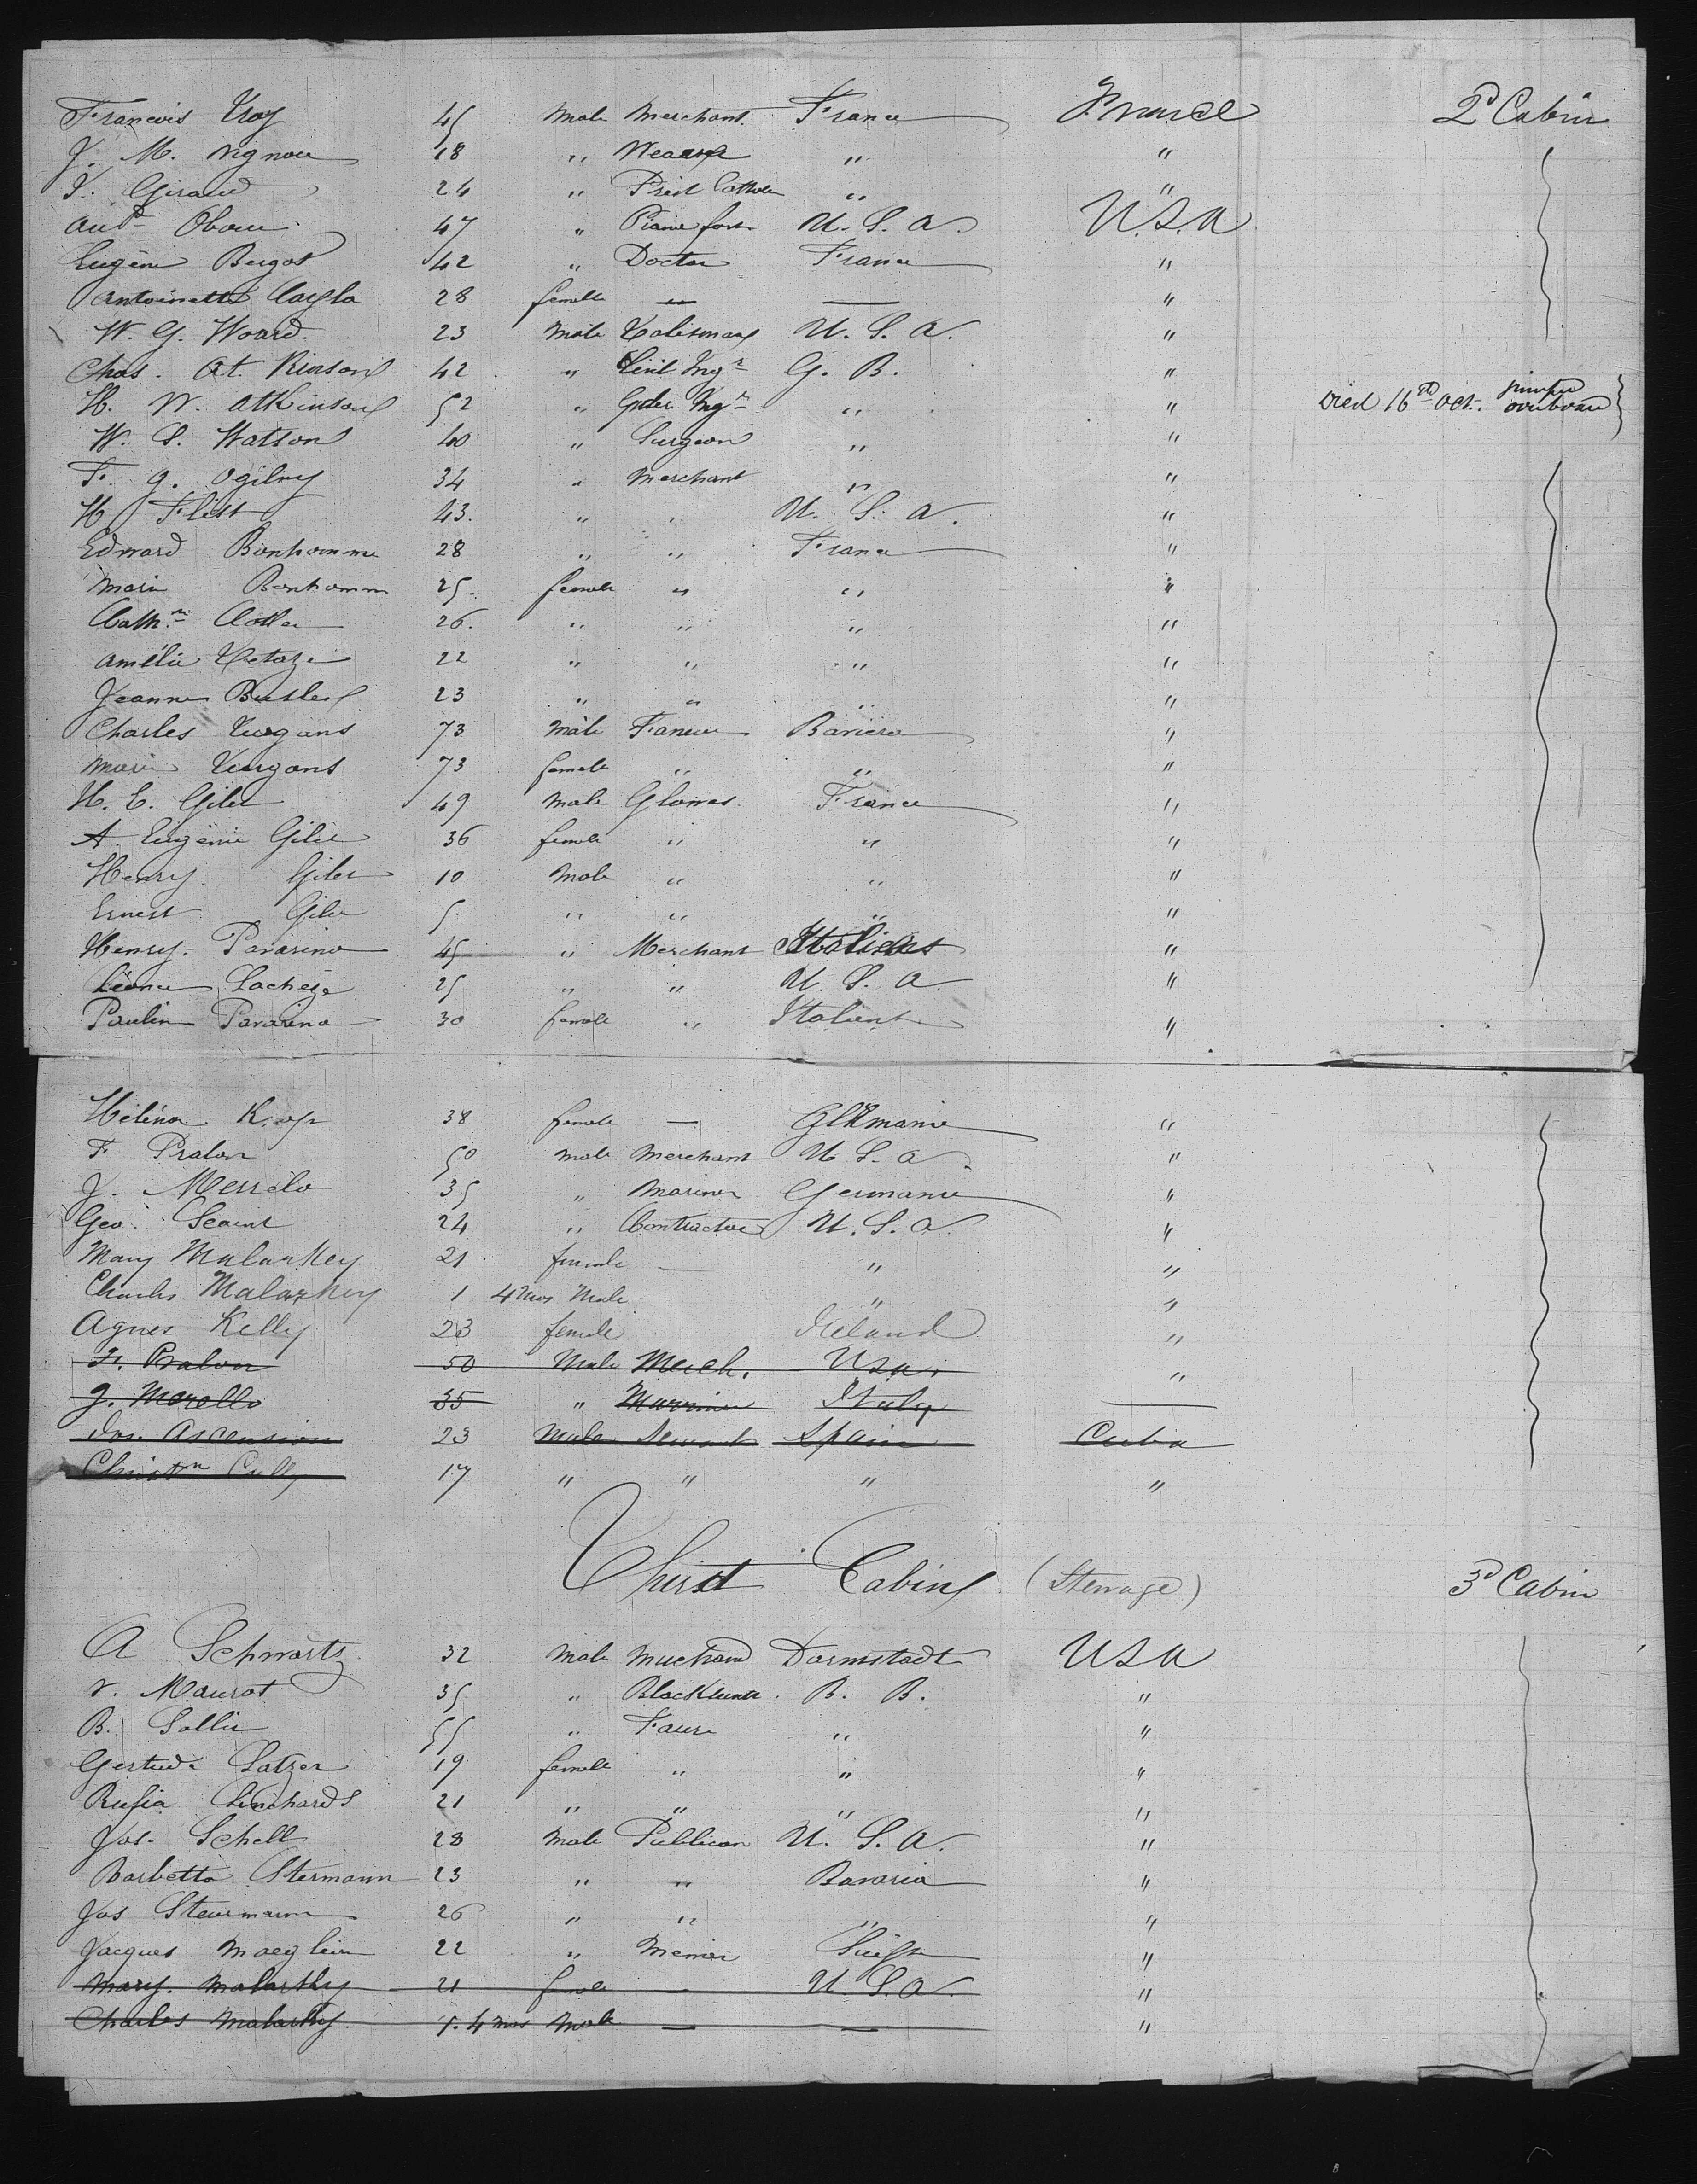 Francois Kroy 45 Male Merchant France France 2d Cabin
J. M. Vignou 18 " " "
J. Giraud 24 " Priest Catholic " "
Aud Obou 47 " Piano fort U.S.A. U.S.A
Eugène Bergos 42 " Doctor France "
Antoinette Cayla 28 female — — "
W. G. Woard 23 Male Talisman U.S.A. "
Chas. At. Kinson 42 " Civil Ingr G. B. "
H. W. Atkinson 52 " Ingr " " Died 16th Oct. jumped overboard
W. S. Watson 40 " Surgeon " "
F. G. Ogilvy 34 " Merchant " "
H Flitt 43. " " U. S. A. "
Edward Bonhomme 28 " " France "
Marie Bonhomm 25. female " " "
Cathne 26. " " " "
Amélie 22 " " " "
Jeanne Butler 23 " " " "
Charles Kurgans 73 Male Baviera "
Marie Kurgans 73 female " " "
H. E. Giles 49 Male Gloves France "
A. Eugénie Gile 36 female " " "
Henry Giles 10 Male " " "
Ernest Gile 5 " " " "
Henry. Pavarino 45 " Merchant Italians "
Léonce Lachèze 25 " " U. S. A. "
Paulin Pavarino 30 female " Italians "
Hélèna Kopp 38 female — Germanie "
F Pralon 50 Male Merchant U S. A. "
J. Merrelo 35 " Mariner Germanie "
Geo. Seaint 24 " Contractor U. S. A. "
Mary Malarkey 21 female — " "
Charles Malarkey 1 4 mos Male " "
Agnes Kelly 23 female Ireland "
F. Pralon 50 Male Merch. USA. "
J. Morello 35 " Marriner Italy —
Jos. Ascension 23 Male Servant Spain Cuba
Christn Cully 17 " " " "
Third Cabin (Steerage) 3d Cabin
A Schwartz 32 Male Merchand Darmstadt USA
V. Maurot 35 " B. B. "
B. Sollie 55 " " "
Gertrude Latzer 19 female " " "
Rusia Linchards 21 " " " "
Jos. Schell 28 Male Publican U. S. A. "
Barbetta Stermann 23 " " Bavaria "
Jos Steurmann 26 " " " "
Jacques Maeglin 22 " "
Mary. Malarkey 21 female — U. S. A. "
Charles Malarkey 1. 4 mos Male — — "